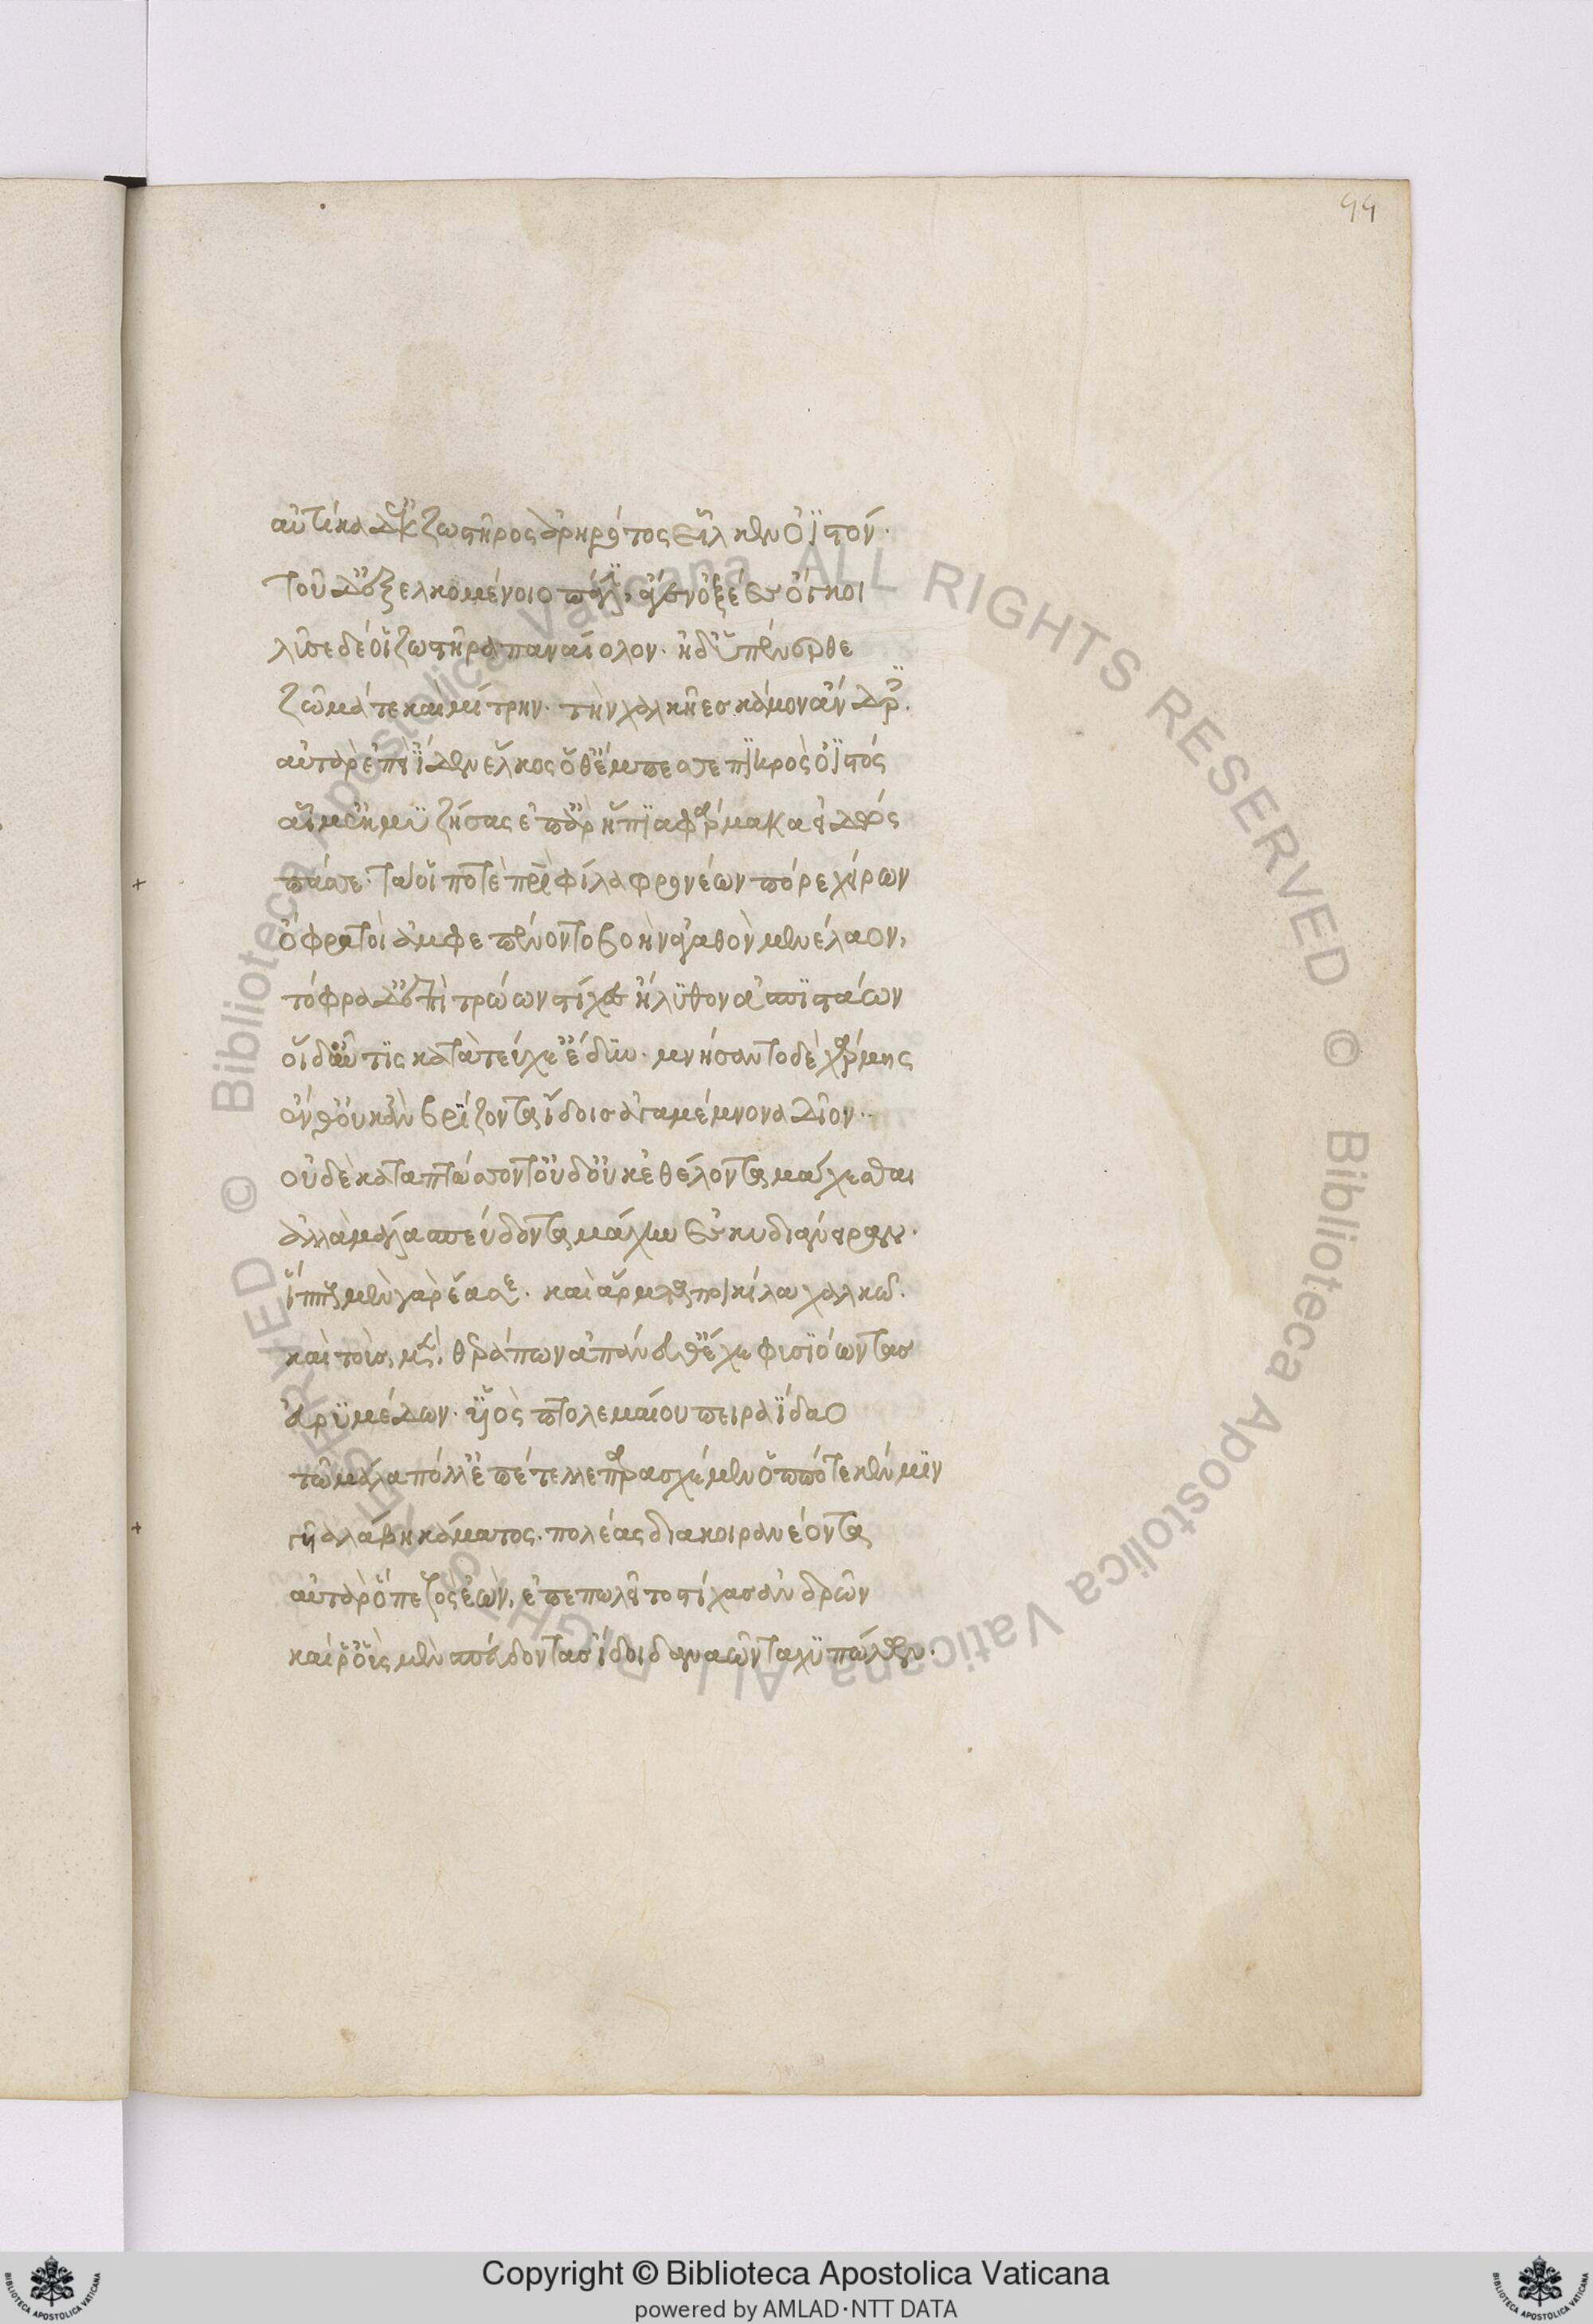 44
αὐτίκα δ' ἐκ ζωστῆρος ἀρηρότος εἷλκεν ὀϊστόν·
τοῦ δ' ἐξελκομένοιο πάλιν ἄγεν ὀξέες ὄγκοι
λῦσε δέ οἱ ζωστῆρα παναίολον· ἠδ' ὑπένερθε
ζῶμά τε καὶ μίτρην· τὴν χαλκῆες κάμον ἄνδρες.
αὐτὰρ ἐπεὶ ἴδεν ἕλκος ὅθ' ἔμπεσε πικρὸς ὀϊστός
αἷμ' ἐκμυζήσας ἐπ' ἄρ' ἤπια φάρμακα εἰδώς
πάσσε· τά οἵ ποτε πατρὶ φίλα φρονέων πόρε χείρων
ὄφρα τοὶ ἀμφεπένοντο βοὴν ἀγαθὸν μενέλαον,
τόφρα δ' ἐπὶ τρώων στίχες ἤλυθον ἀσπιστάων
οἱ δ' αὖτις κατὰ τεύχε' ἔδυν· μνήσαντο δὲ χάρμης
ἔνθ' οὐκ ἂν βρίζοντα ἴδοις ἀγαμέμνονα δῖον··
οὐδὲ καταπτώσσοντ' οὐδ' οὐκ ἐθέλοντα μάχεσθαι
ἀλλὰ μάλα σπεύδοντα μάχην ἐς κυδιάνειραν·
ἵππους μὲν γὰρ ἔασε· καὶ ἅρματα ποικίλα χαλκῷ·
καὶ τοὺς μὲν θεράπων ἀπάνευθ' ἔχε φυσιόωντας
εὐρυμέδων· υἱὸς πτολεμαίου πειραΐδαο
τῷ μάλα πόλλ' ἐπέτελλε παρασχέμεν ὁππότε κέν μιν
γυῖα λάβῃ κάματος· πολέας διακοιρανέοντα
αὐτὰρ ὁ πεζὸς ἐὼν, ἐπεπωλεῖτο στίχας ἀνδρῶν
καί ῥ' οὓς μὲν σπεύδοντας ἴδοι δαναῶν ταχυπώλων·
Copyright © Biblioteca Apostolica Vaticana
powered by AMLAD·NTT DATA
© Biblioteca Apostolica Vaticana ALL RIGHTS RESERVED
© Biblioteca Apostolica Vaticana ALL RIGHTS RESERVED